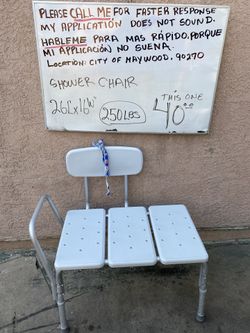 PLEASE CALL ME FOR FASTER RESPONSE
MY APPLICATION DOES NOT SOUND.
HABLEME PARA MAS RÁPIDO. PORQUE
MI APPLICACIÓN NO SUENA.
LOCATION: CITY OF MAYWOOD. 90270
SHOWER CHAIR
26L"X16W"
250LBS
THIS ONE
40.00